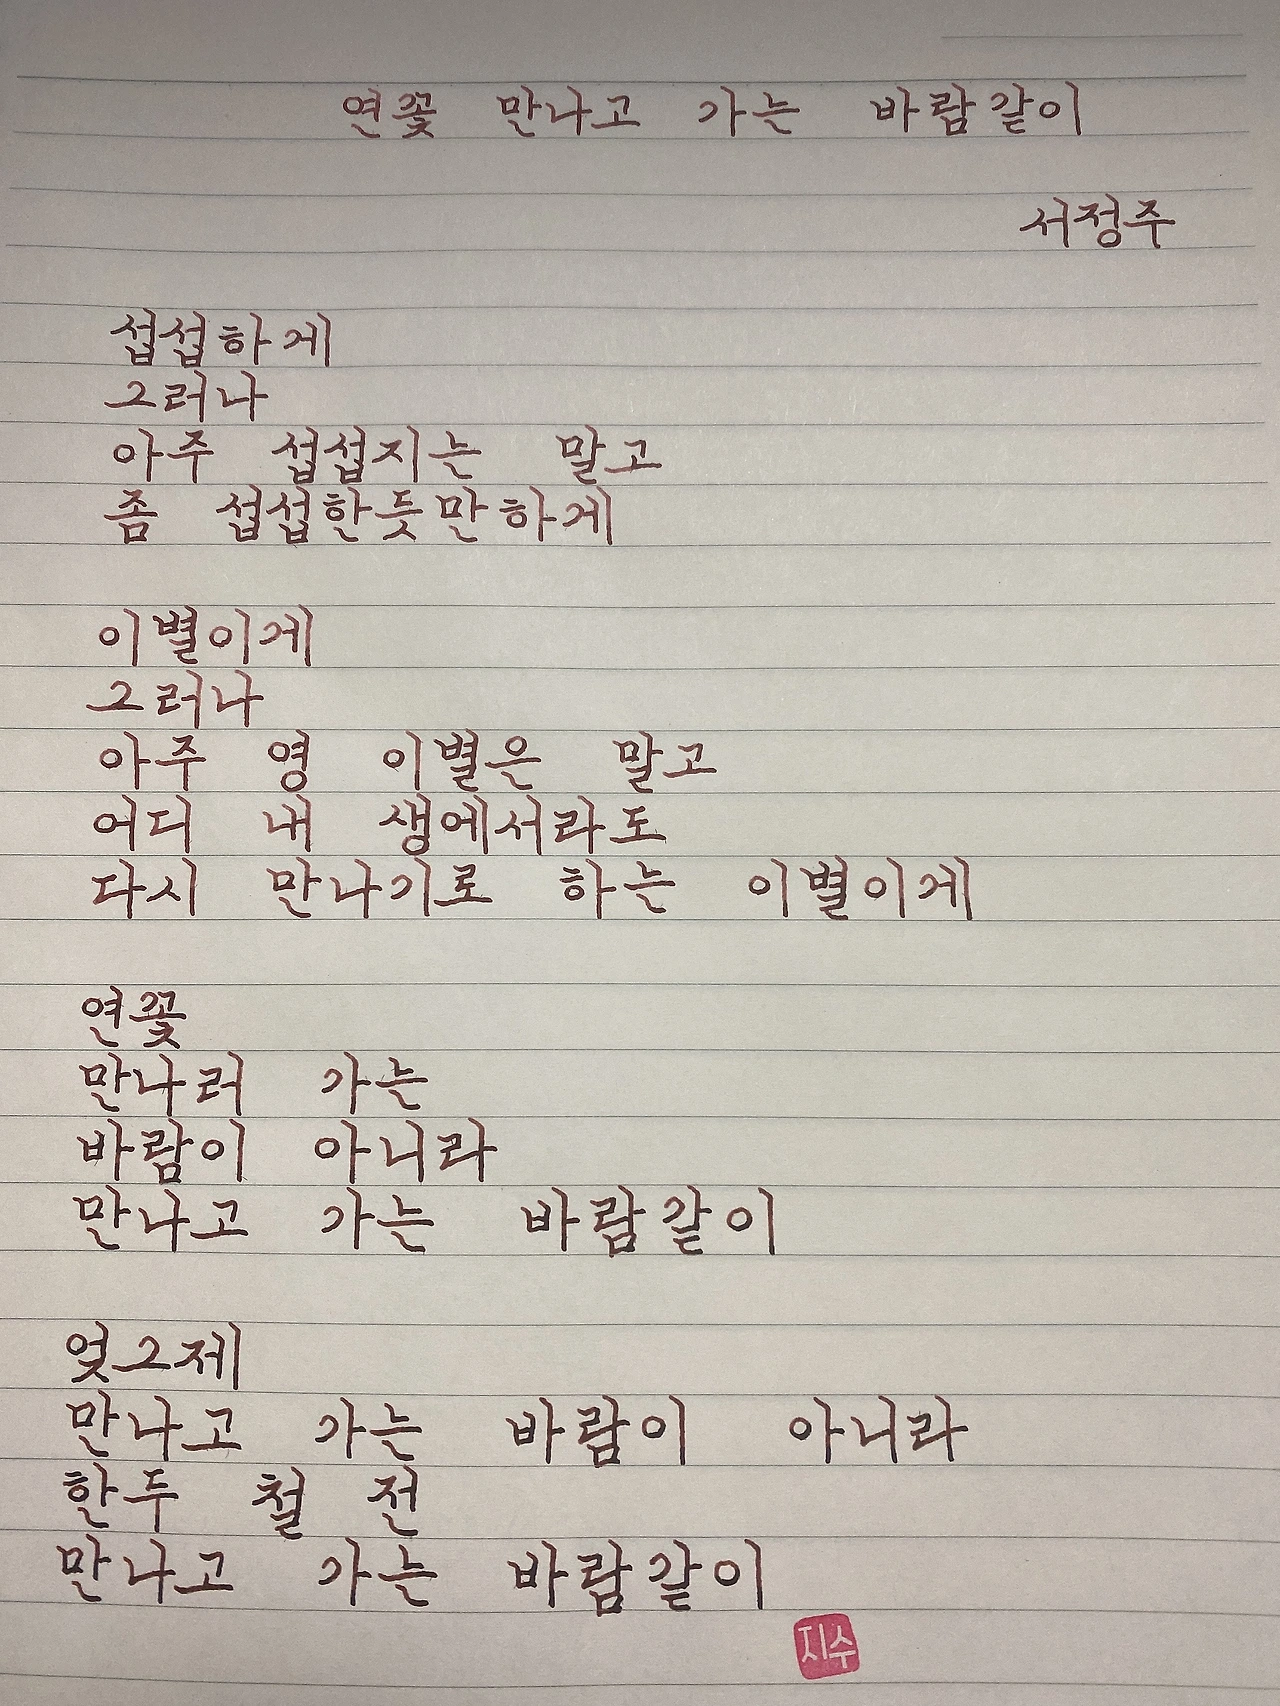 연꽃 만나고 가는 바람같이
서정주
섭섭하게
그러나
아주 섭섭지는 말고
좀 섭섭한듯만하게
이별이게
그러나
아주 영 이별은 말고
어디 내 생에서라도
다시 만나기로 하는 이별이게
연꽃
만나러 가는
바람이 아니라
만나고 가는 바람같이
엊그제
만나고 가는 바람이 아니라
한두 철 전
만나고 가는 바람같이
지수